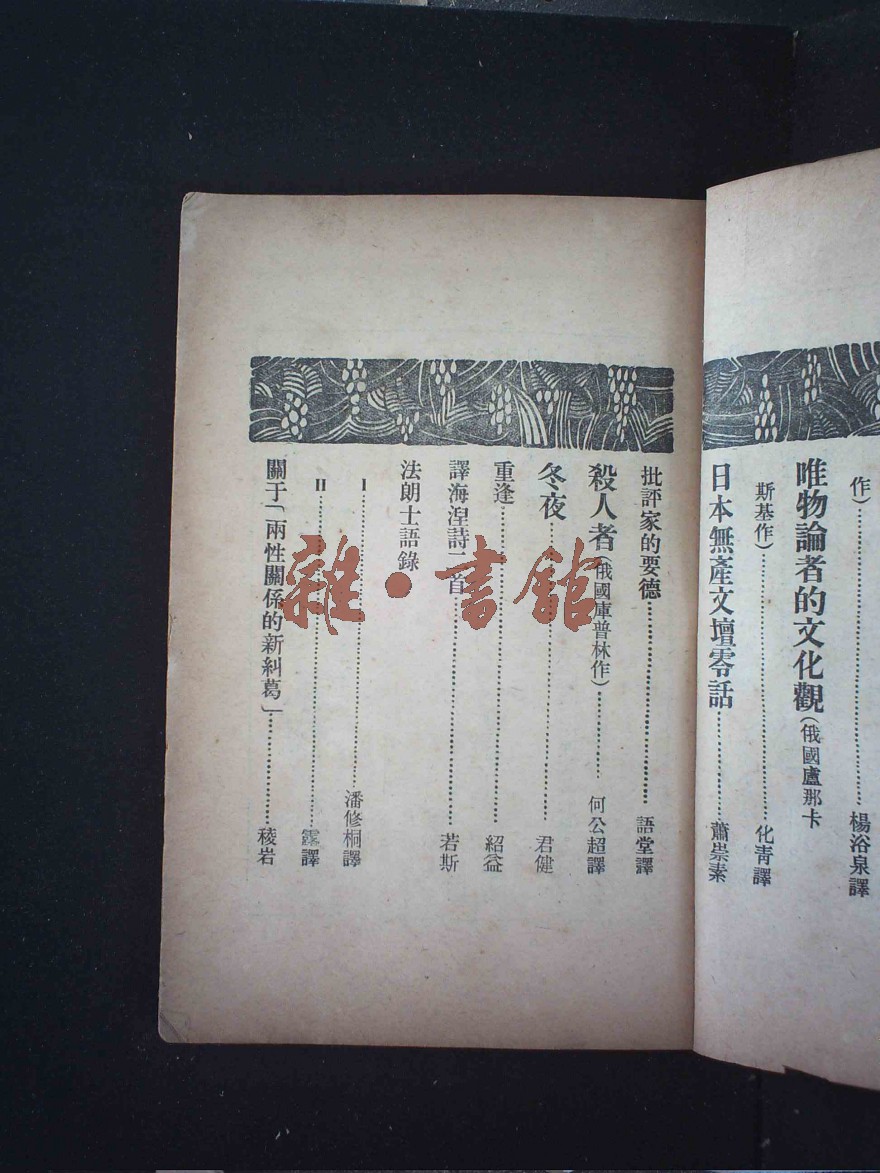 作）……楊浴泉譯
唯物論者的文化觀（俄國盧那卡
斯基作）……化青譯
日本無產文壇零話……蕭崇素
批評家的要德……語堂譯
殺人者（俄國庫普林作）……何公超譯
冬夜……君健
重逢……紹益
譯海涅詩二首……若斯
法朗士語錄
I……潘修桐譯
II……霞譯
關于「兩性關係的新糾葛」……稜岩
雜·書館